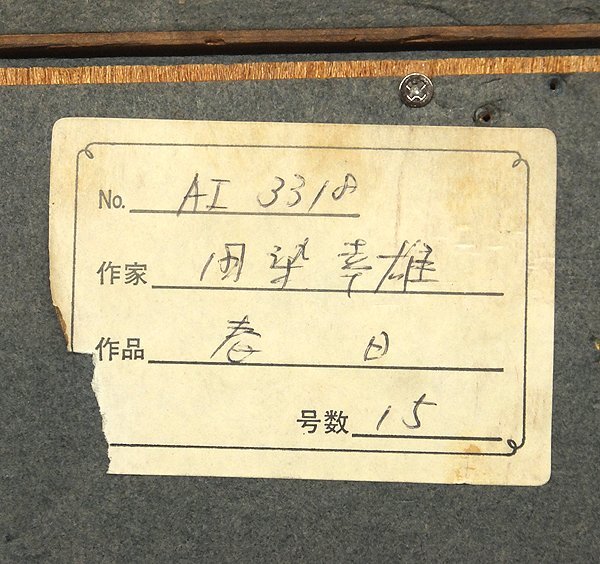 No. AI 3318
作家 染 幸雄
作品 春 日
号数 15